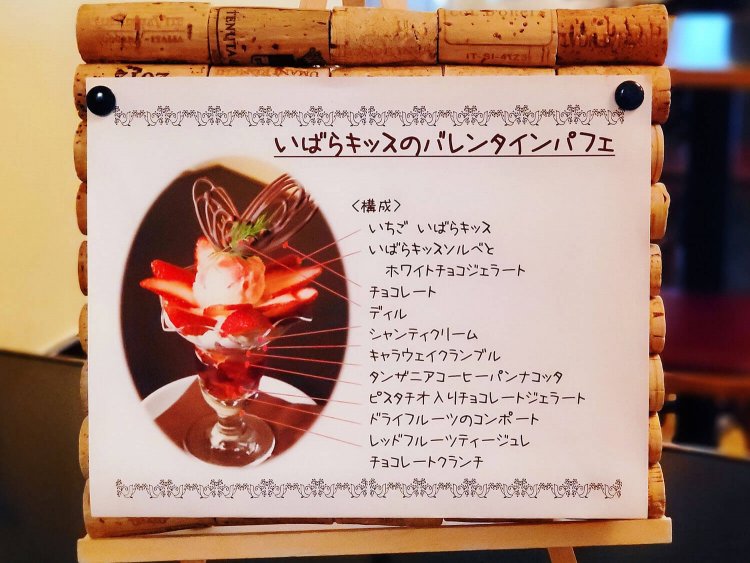 TENUTA
IT-SI-4123
いばらキッスのバレンタインパフェ
〈構成〉
いちご いばらキッス
いばらキッスソルベと
ホワイトチョコジェラート
チョコレート
ディル
シャンティクリーム
キャラウェイクランブル
タンザニアコーヒーパンナコッタ
ピスタチオ入りチョコレートジェラート
ドライフルーツのコンポート
レッドフルーツティージュレ
チョコレートクランチ